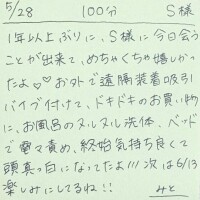 5/28 100分 S様
1年以上ぶりに、S様に今日会う
ことが出来て、めちゃくちゃ嬉しかっ
たよ♡♡お外で遠隔装着吸引
バイブ付けて、ドキドキのお買い物
に、お風呂のヌルヌル洗体、ベッド
で電マ責め、終始気持ち良くて
頭真っ白になってたよ!!!次は6/13
楽しみにしてるね!!
みと